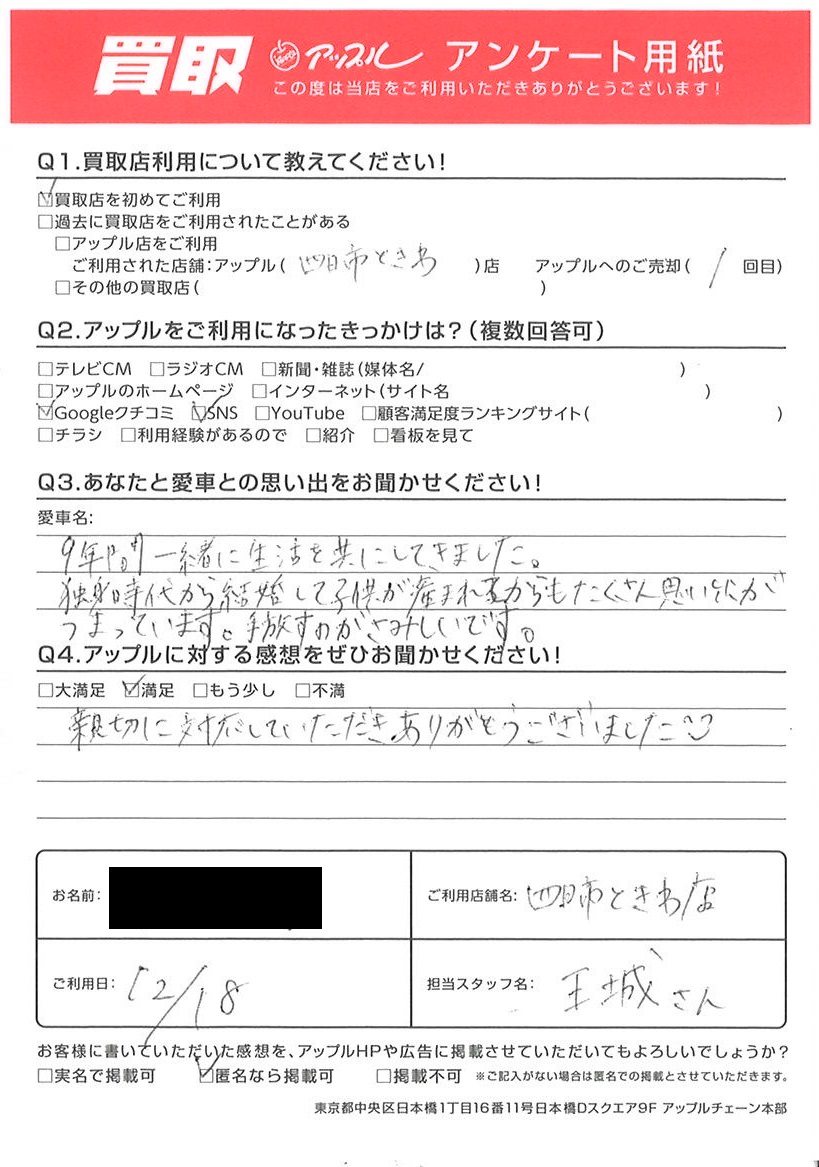 買取 アップル アンケート用紙
この度は当店をご利用いただきありがとうございます!
Q1.買取店利用について教えてください!
☑買取店を初めてご利用
□過去に買取店をご利用されたことがある
□アップル店をご利用
ご利用された店舗:アップル( 四日市ときわ )店 アップルへのご売却( / 回目)
□その他の買取店( )
Q2.アップルをご利用になったきっかけは?(複数回答可)
□テレビCM □ラジオCM □新聞・雑誌(媒体名/ )
□アップルのホームページ □インターネット(サイト名 )
☑Googleクチコミ ☑SNS □YouTube □顧客満足度ランキングサイト( )
□チラシ □利用経験があるので □紹介 □看板を見て
Q3.あなたと愛車との思い出をお聞かせください!
愛車名:
9年間一緒に生活を共にしてきました。
独身時代から結婚して子供が産まれてからもたくさん思い出が
つまっています。手放すのがさみしいです。
Q4.アップルに対する感想をぜひお聞かせください!
□大満足 ☑満足 □もう少し □不満
親切に対応していただきありがとうございました
お名前:
ご利用店舗名: 四日市ときわ店
ご利用日: 12/18
担当スタッフ名: 玉城さん
お客様に書いていただいた感想を、アップルHPや広告に掲載させていただいてもよろしいでしょうか?
□実名で掲載可 ☑匿名なら掲載可 □掲載不可 ※ご記入がない場合は匿名での掲載とさせていただきます。
東京都中央区日本橋1丁目16番11号日本橋Dスクエア9F アップルチェーン本部